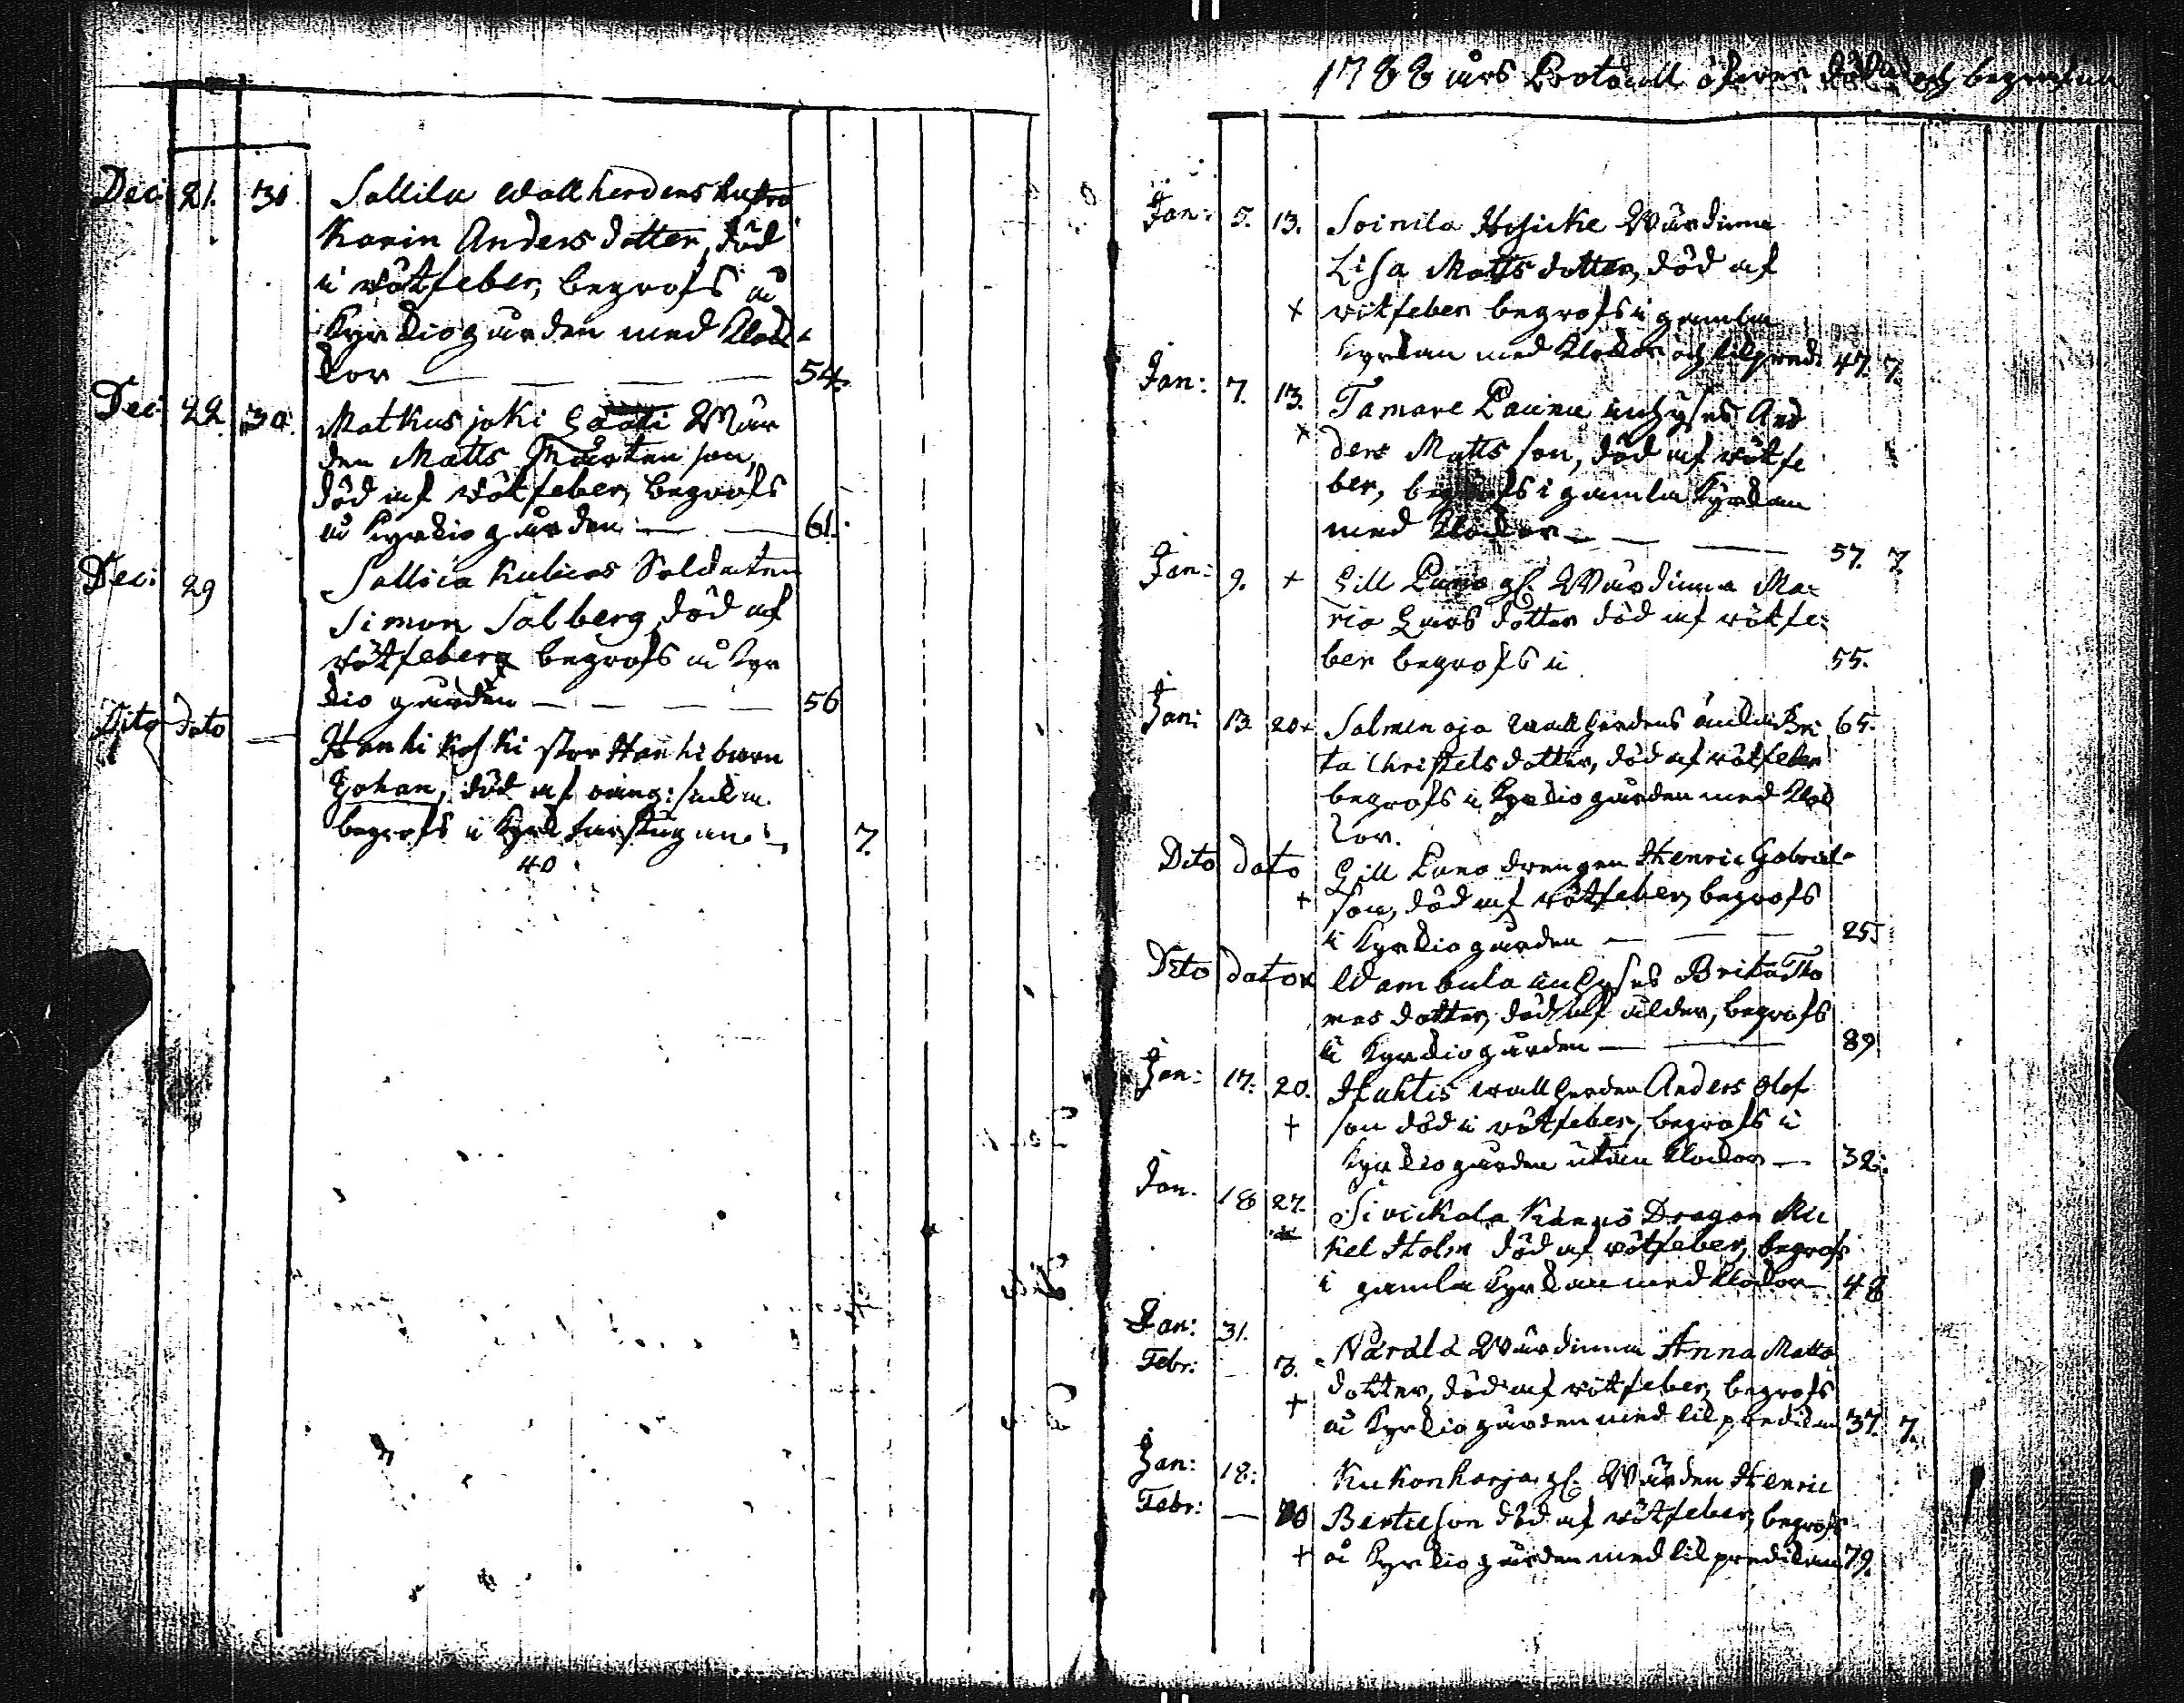 Dec: 21. 30 Sallila Wallherdens hustro
Karin Anders dotter, död
i rötfeber, begrofs å
Kyrkiogården med Kloc-
kor — — — — 54.
Dec: 22. 30. Matkusjoki Wär
den Matts Mårten son,
död af rötfeber, begrofs
å Kyrkiogården — — 61.
Dec: 29 Sallica Kulicas Soldaten
Simon Salberg, död af
rötfeber, begrofs å Kyr
kiogården — — — — 56
Dito dato — Hanhi koski stor Hanhi barn
Johan, död af
begrofs i 7.
40
1788 års Protocoll öfwer döda och begrafna
Jan: 5. 13. Soinila Wärdinna
Lisa Matts dotter, död af
+ rötfeber begrofs i gamla
Kyrkan med Klockor och lilpred: 47. 7.
Jan: 7. 13. Tamare Inhyses And
+ ders Matts son, död af rötfe
ber, begrofs i gamla Kyrkan
med Klockor — — — 57. 7.
Jan: 9. + Lill Pano gl. Wärdinna Ma-
ria Lars dotter död af rötfe-
ber begrofs i 55.
Jan: 13. 20 + Salmenoja Wallherdens änka Bri 65.
ta Christels dotter, död af rötfeber
begrofs i Kyrkiogården med Kloc
kor.
Dito dato Lill Pano drengen Henric Gabriel-
+ son, död af rötfeber, begrofs
i Kyrkiogården — — — 25.
Dito dato + Wambula inhyses Brita Tho
mas dotter, död af ålder, begrofs
i Kyrkiogården — — 89
Jan: 17. 20. Huhtis wallherden Anders Olof
+ son död i rötfeber, begrofs i
Kyrkiogården utan Klockor — 32.
Jan. 18 27. Sivickala Dragon Mic
+ kel Holm död af rötfeber, begrofs
i gamla Kyrkan med Klockor — 48
Jan: 31.
Febr: — 3. Närälä Wärdinna Anna Matts
+ dotter, död af rötfeber, begrofs
å Kyrkiogården med lilpredikan 37. 7.
Jan: 18: Kukonharja gl. Wärden Henric
Febr: — 10 Bertilson död af rötfeber, begrofs
+ å Kyrkiogården med lilpredikan 79.